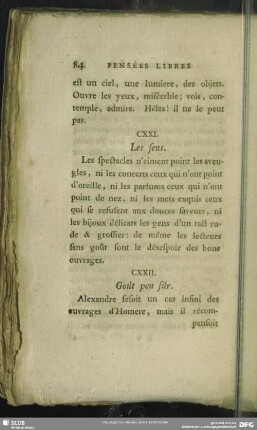 84 PENSÉES LIBRES
est un ciel, une lumiere, des objets.
Ouvre les yeux, misérable; vois, con-
temple, admire. Hélas! il ne le peut
pas.
CXXI.
Les sens.
Les spectacles n'aiment point les aveu-
gles, ni les concerts ceux qui n'ont point
d'oreille, ni les parfums ceux qui n'ont
point de nez, ni les mets exquis ceux
qui se refusent aux douces saveurs, ni
les bijoux délicats les gens d'un tact ru-
de & grossier: de même les lecteurs
sans goût sont le désespoir des bons
ouvrages.
CXXII.
Goût peu sûr.
Alexandre fesoit un cas infini des
ouvrages d'Homere, mais il récom-
pensoit
SLUB
DFG